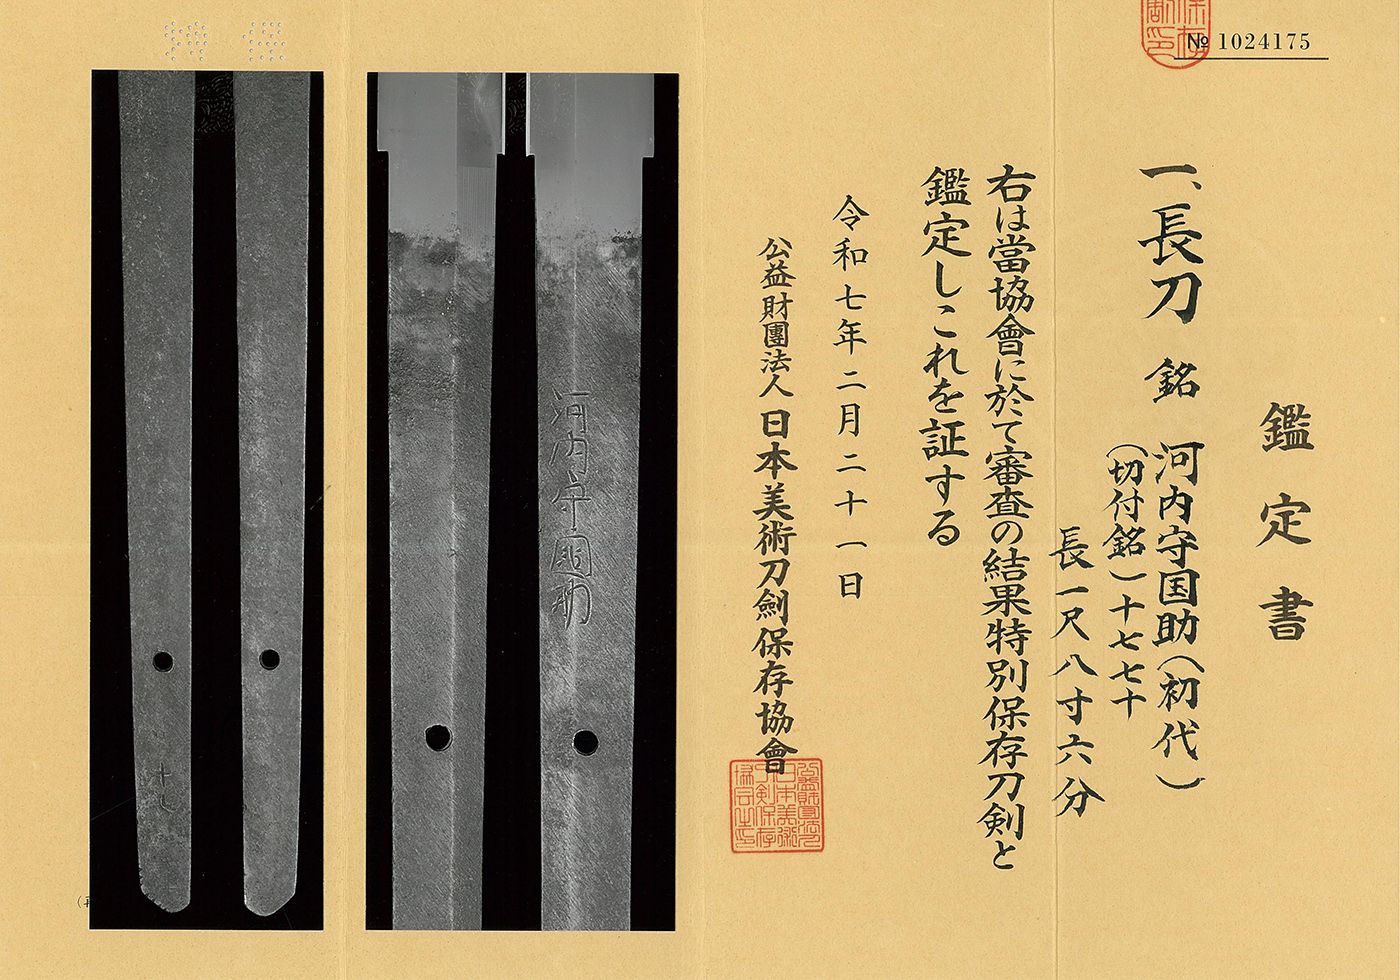 № 1024175
鑑定書
一、長刀 銘 河内守国助(初代)
(切付銘)十七七十
長一尺八寸六分
右は當協會に於て審査の結果特別保存刀剣と
鑑定しこれを証する
令和七年二月二十一日
公益財團法人日本美術刀劍保存協會
河内守國助
十七